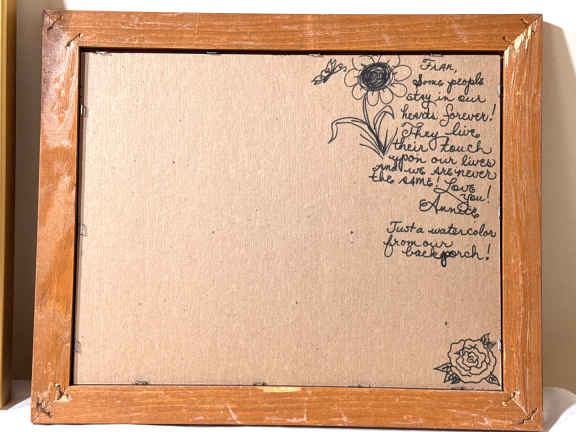 Fran,
Some people
stay in our
hearts forever!
They live
their touch
upon our lives
and we are never
the same! Love
you!
Annice
Just a watercolor
from our
back porch!